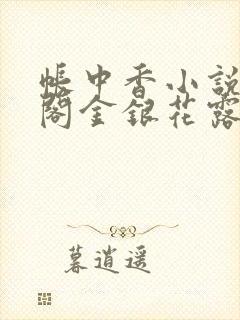 帐中香小説
閣金銀花露
暮逍遥